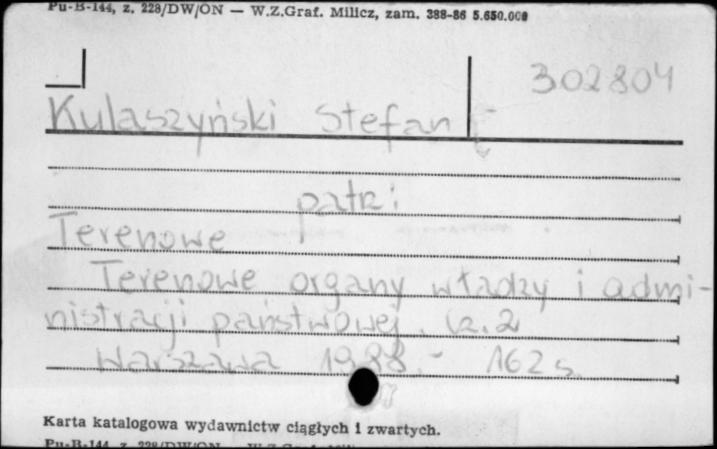 Pu-B-144, z. 228/DW/ON — W.Z.Graf. Milicz, zam. 388-86 5.650.000
302804
Kulaszyński Stefan
patrz:
Terenowe
Terenowe organy władzy i admi-
nistracji państwowej. Cz. 2
Warszawa 1988.- 162 s.
Karta katalogowa wydawnictw ciągłych i zwartych.
Pu-B-144, z. 228/DW/ON — W.Z.Graf. Milicz